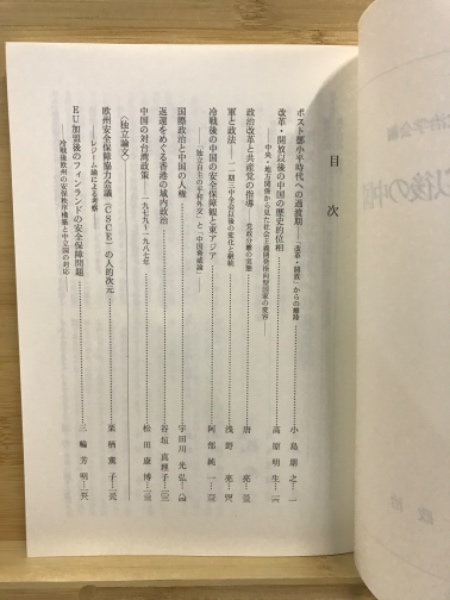 目次
ポスト鄧小平時代への過渡期――「改革・開放」からの離陸……小島朋之…一
改革・開放以後の中国の歴史的位相……高原明生…
――中央・地方関係から見た社会主義開発指向型国家の変容――
政治改革と共産党の指導――党政分離の実態……唐亮…
軍と政法――一一期三中全会以後の変化と継続……浅野亮…
冷戦後の中国の安全保障観と東アジア……阿部純一…
――「独立自主の平和外交」と「中国脅威論」――
国際政治と中国の人権……宇田川光弘…
返還をめぐる香港の域内政治……谷垣真理子…
中国の対台湾政策 一九七九~一九八七年……松田康博…
〈独立論文〉
欧州安全保障協力会議(CSCE)の人的次元……栗栖薫子…
――レジーム論による考察――
EU加盟後のフィンランドの安全保障問題……三輪芳明…
――冷戦後欧州の安保秩序構築と中立国の対応――